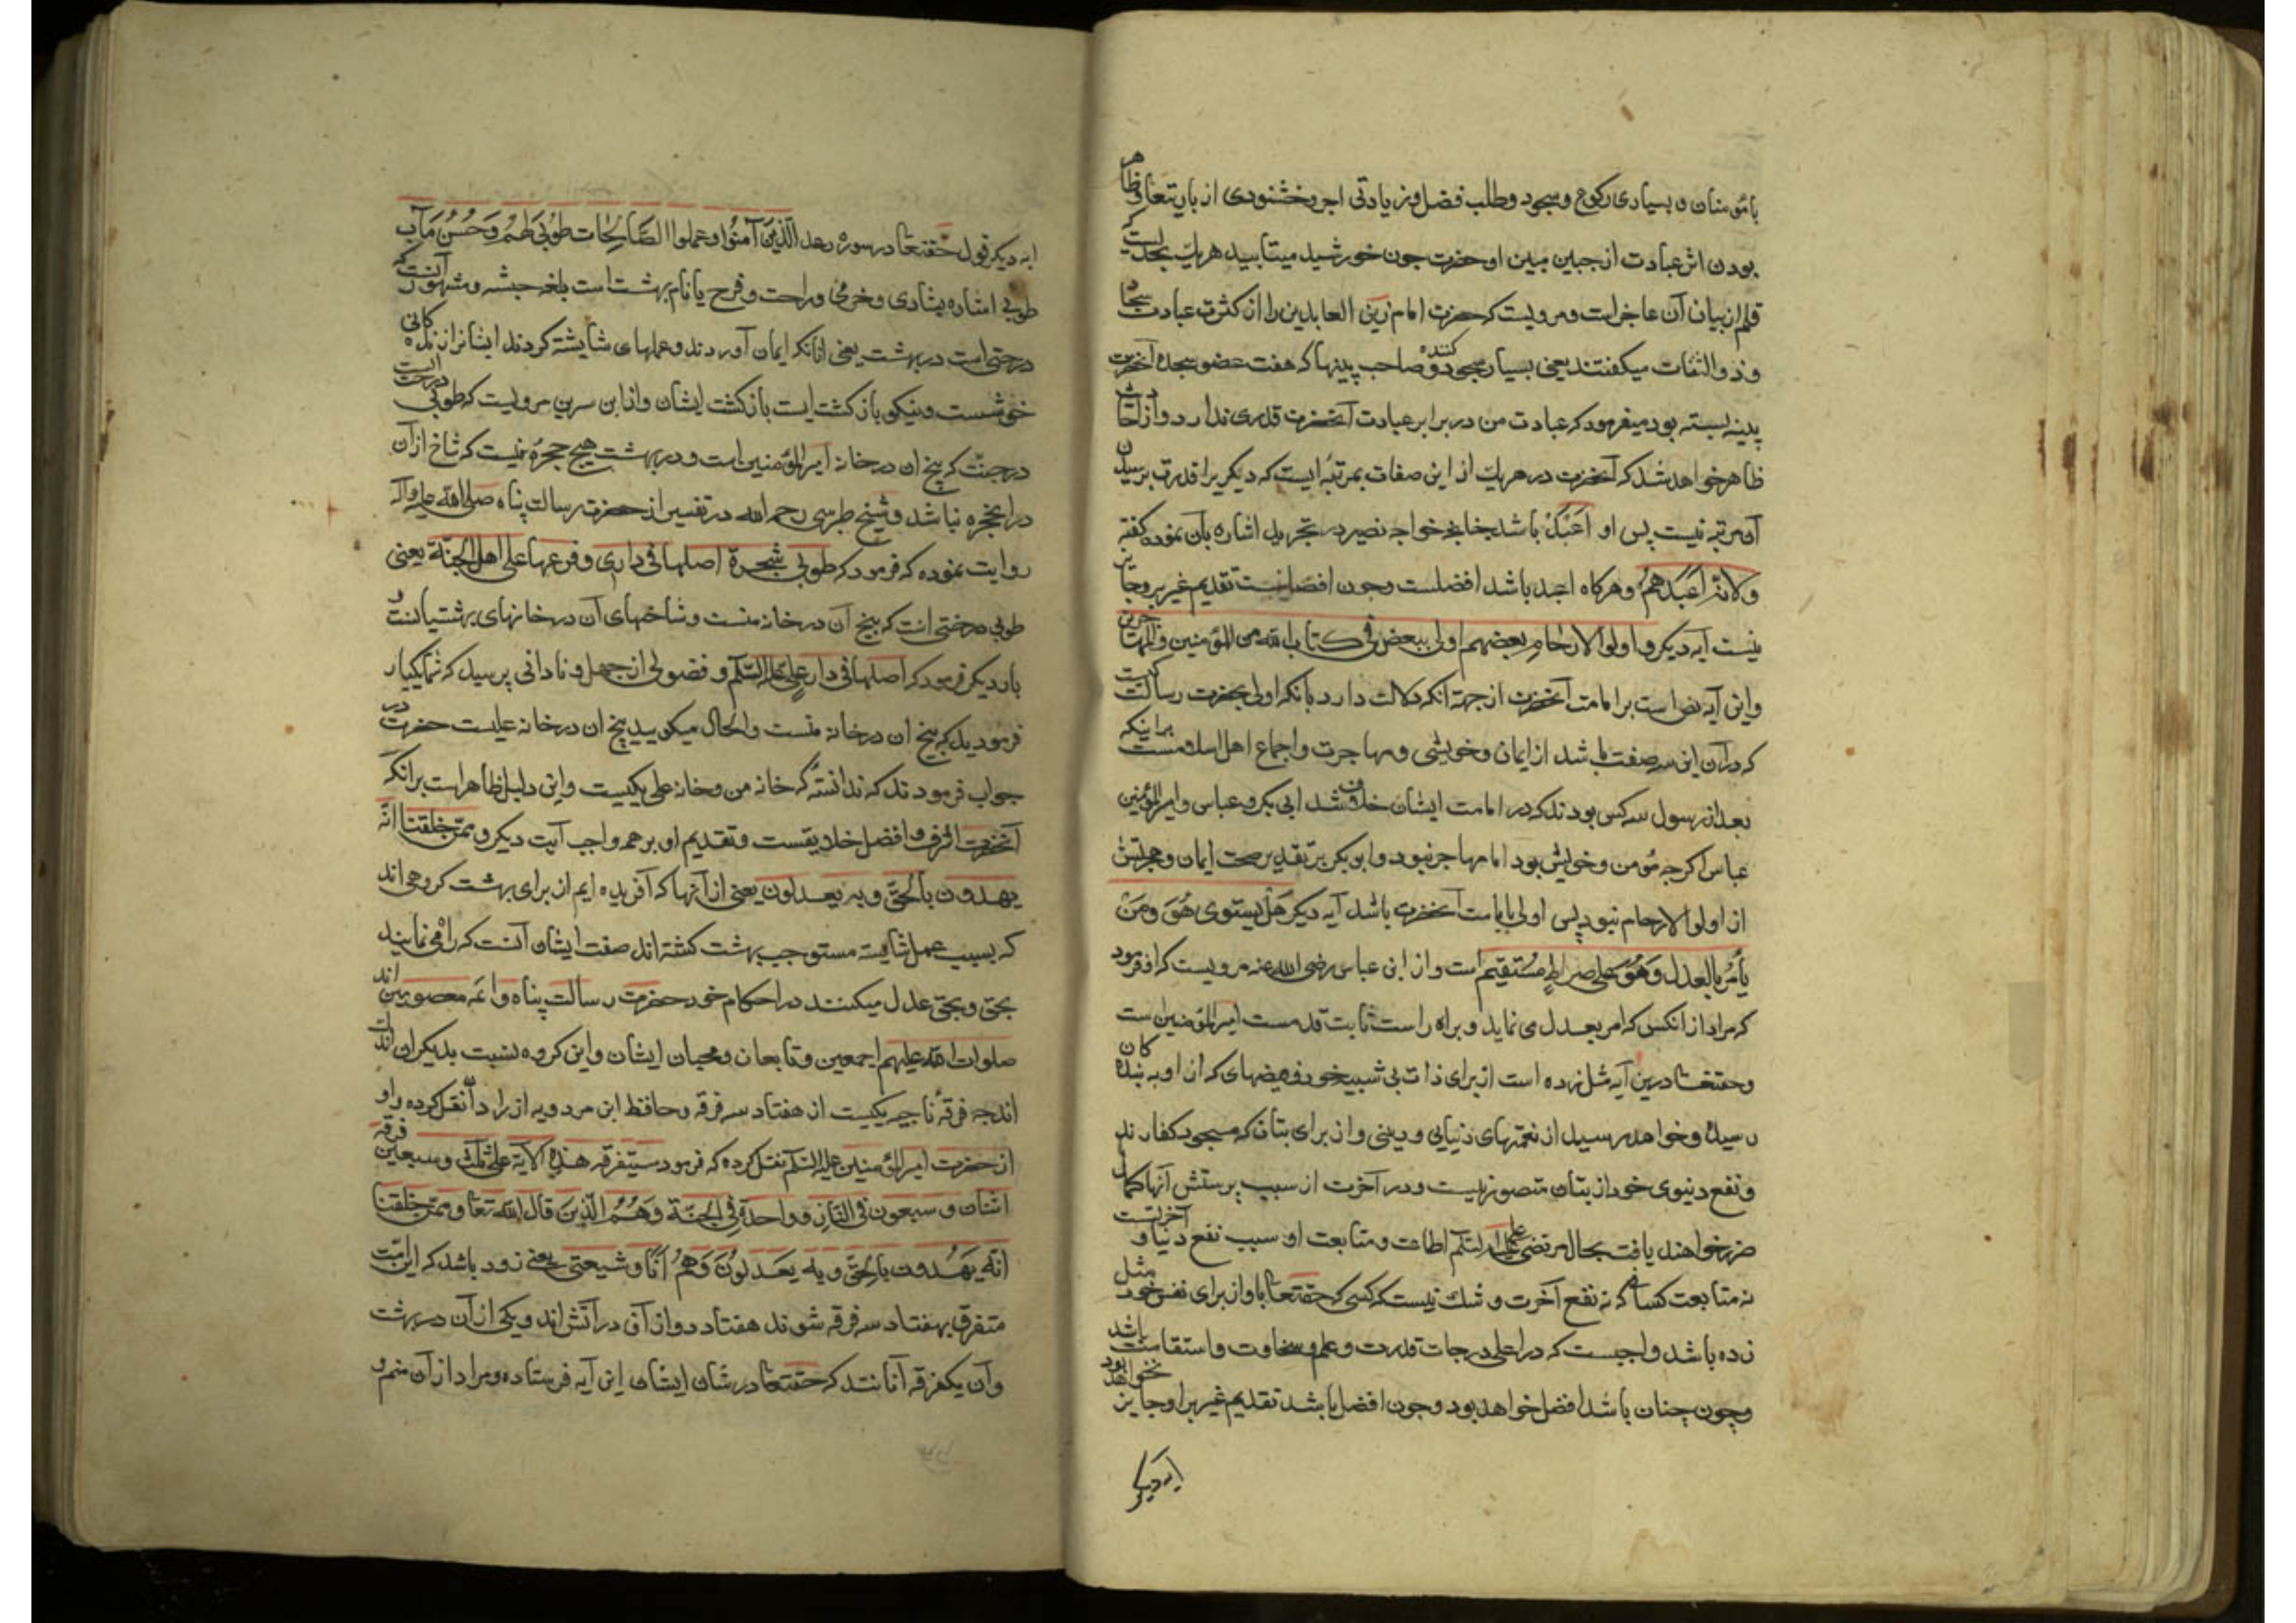 بامؤمنان و بسیاری رکوع و سجود و طلب فضل و زیادتی اجر و خشنودی از باریتعا و ظاهر
بودن اثر عبادت از جبین مبین او حضرت چون خورشید میتابید هر یک بحدیست که
قلم از بیان آن عاجز است و مرویست که حضرت امام زین العابدین را از کثرت عبادت سجاد
و ذو الثفنات میکفتند یعنی بسیار سجود کننده و صاحب پینها که هفت عضو سجده آنحضرت
پینه بسته بود میفرمود که عبادت من در برابر عبادت آنحضرت قدری ندارد و از
ظاهر خواهد شد که آنحضرت در هر یک از این صفات بمرتبه ایست که دیکریرا قدرت برسیدن
آن مرتبه نیست پس او اَعْبَدْ باشد چنانچه خواجه نصیر در تجرید اشاره بآن نموده کفته
ولانّه اَعْبَدهمْ و هرکاه اعبد باشد افضلست و چون افضلست تقدیم غیر برو جایز
نیست آیه دیکر و اولوا الارحامِ بعضهم اولی ببعض فی کتاب الله من المؤمنین والمهاجرین
و این آیه نص است بر امامت آنحضرت از جهة آنکه دلالت دارد بآنکه اولی بحضرت رسالت کسیست
که در آن این سه صفت باشد از ایمان و خویشی و مهاجرت و اجماع اهل اسلامست براینکه
بعد از رسول سه کس بودند که در امامت ایشان خلاف شد ابی بکر و عباس و امیرالمؤمنین
عباس اکرچه مؤمن و خویش بود اما مهاجر نبود و ابو بکر بر تقدیر صحت ایمان و هجرتش
از اولوا الارحام نبود پس اولی بامامت آنحضرت باشد آیه دیکر هَلْ یستوی هُوَ ومَنْ
یأمُرُ بالعدل وَهُوَ علی صراطٍ مُستقیم است و از ابن عباس رضی الله عنه مرویست که او فرمود
که مراد از آنکس که امر بعدل می نماید و براه راست ثابت قدمست امیرالمؤمنین است
و حقتعا درین آیه مثل زده است از برای ذات بی شبیه خود و فیضهای که از او به بندکان
رسیده و خواهد رسید از نعمتهای دنیایی و دینی و از برای بتان که مسجود کفارند
و نفع دنیوی خود از بتان متصور نیست و در آخرت از سبب پرستش آنها کمال
ضرر خواهند یافت بحال مرتضی علی علیه السلام اطاعت و متابعت او سبب نفع دنیا و آخرتست
نه متابعت کسانی که نه نفع آخرت و شک نیست که کسی که حقتعا با و از برای نفس خود مثل
زده باشد واجبست که در اعلی درجات قدرت و علم و سخاوت و استقامت باشد
و چون چنان باشد افضل خواهد بود و چون افضل باشد تقدیم غیر بر او جایز نخواهد بود
آیه دیکر
ایه دیکر قول حقتعا در سوره رعد الَّذینَ آمنُوا وعملوا الصَّالِحات طُوبی لهُم وَحُسْنُ مَآب
طوبی اشاره بشادی و خرمی و راحت و فرح یا نام بهشت است بلغه حبشه و مشهور آنست که
درختی است در بهشت یعنی آنانکه ایمان آوردند و عملهای شایسته کردند ایشانراز زندکانی
خوشست و نیکو بازکشت ایست بازکشت ایشان و از ابن سرین مرویست که طوبی درختیست
در جنّت که بیخ ان در خانه امیرالمؤمنین است و در بهشت هیچ حجرهٔ نیست که شاخ از آن
در آنحجره نباشد و شیخ طبرسی رحمه الله در تفسیر از حضرت رسالت پناه صلی الله علیه وآله
روایت نموده که فرمود که طوبی شجرة اصلها فی داری و فرعها علی اهل الجنّة یعنی
طوبی درختی است که بیخ آن در خانه منست و شاخهای آن در خانهای بهشتیانست و
بار دیکر فرمود که اصلها فی دار علیٍ علیه السّلم و فضولی از جهل و نادانی پرسید که شما یکبار
فرمودید که بیخ ان در خانه منست و الحال میکویید بیخ ان در خانه علیست حضرت در
جواب فرمودند که ندانستهٔ که خانه من و خانه علی یکیست و این دلیل ظاهر است برآنکه
آنحضرت اشرف و افضل خلایقست و تقدیم او بر همه واجب آیت دیکر و ممّن خلقنا امّة
یهدون بالحقّ و به یعدلون یعنی از آنها که آفریده ایم از برای بهشت کروهی اند
که بسبب عمل شایسته مستوجب بهشت کشته اند صفت ایشان آنست که راه می نمایند
بحق و بحق عدل میکنند در احکام خود حضرت رسالت پناه و ائمه معصومین اند
صلوات الله علیهم اجمعین و تابعان و محبان ایشان و این کروه نسبت بدیکران اندک
اند چه فرقهٔ ناجیه یکیست از هفتاد سه فرقه و حافظ ابن مردویه از زادان نقل کرده و او
از حضرت امیرالمؤمنین علیه السّلم نقل کرده که فرمود ستفرقه هذِهِ الاّیة علی ثلث وسبعین فرقه
اثنان و سبعون فی النّار و واحدةٍ فی الجنّة وَهُمُ الّذینَ قال الله تعا و ممّن خلقنا
امّة یَهْدون بالحَقّ و به یعْدلوُنَ وَهُمْ اَنَا و شیعتی یعنی زود باشد که این امّت
متفرق بهفتاد سه فرقه شوند هفتاد دو از آن در آتش اند و یکی از آن در بهشت
و آن یکفرقه آنانند که حقتعا در شان ایشان این آیه فرستاده و مراد از آن منم و